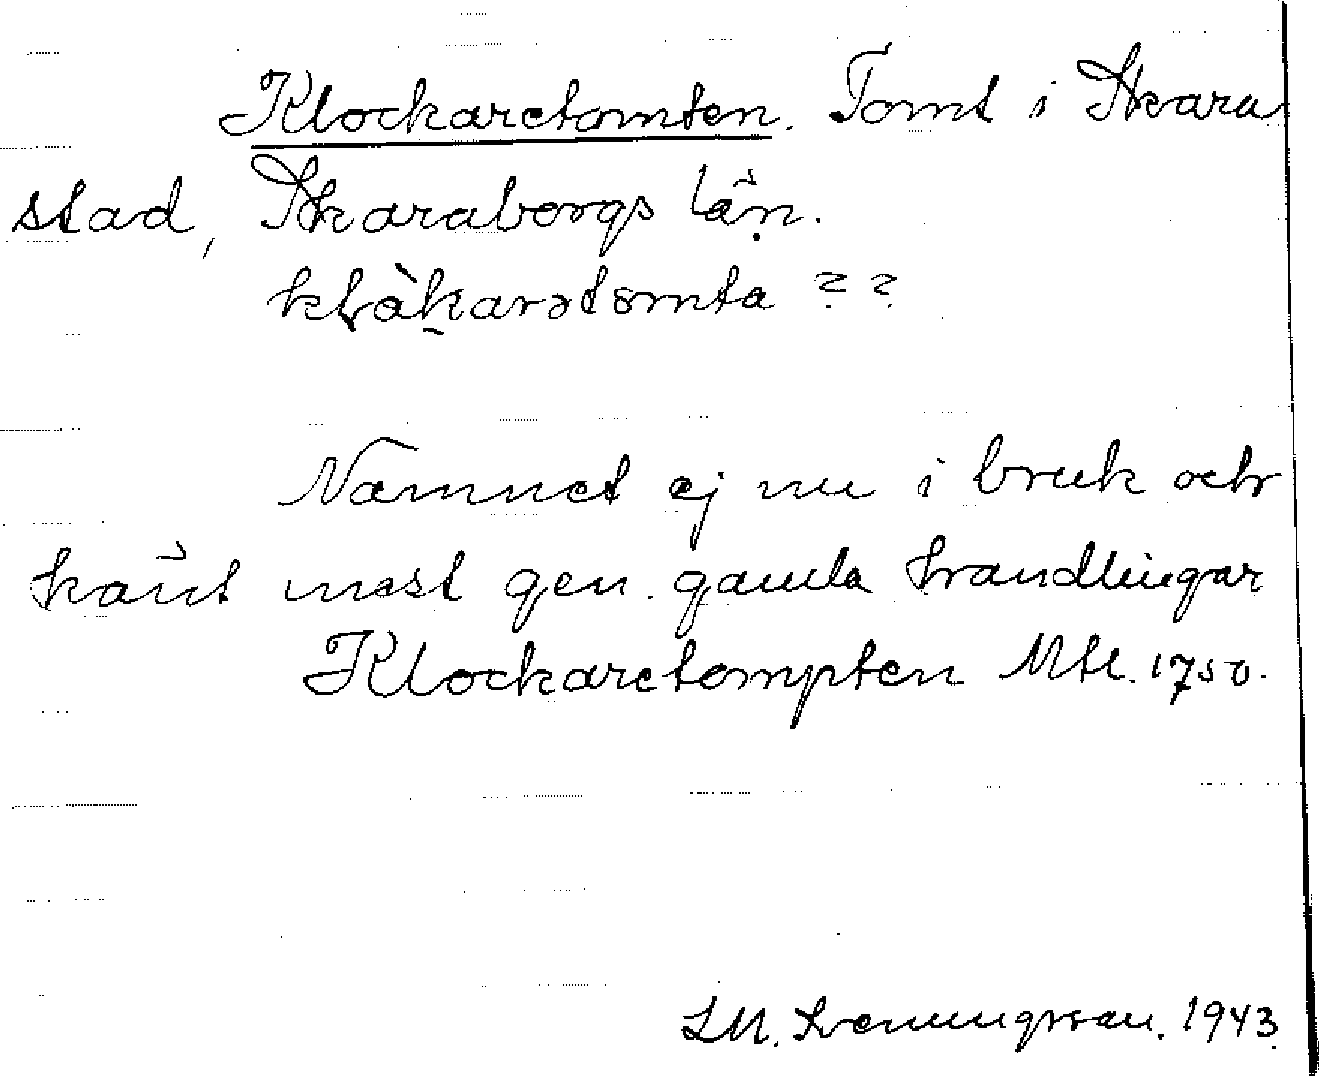 Klockaretomten. Tomt i Skara
stad, Skaraborgs län.
klåkarətomta ??
Namnet ej nu i bruk och
känt mest gen. gamla handlingar
Klockaretompten Mtl. 1750.
1943